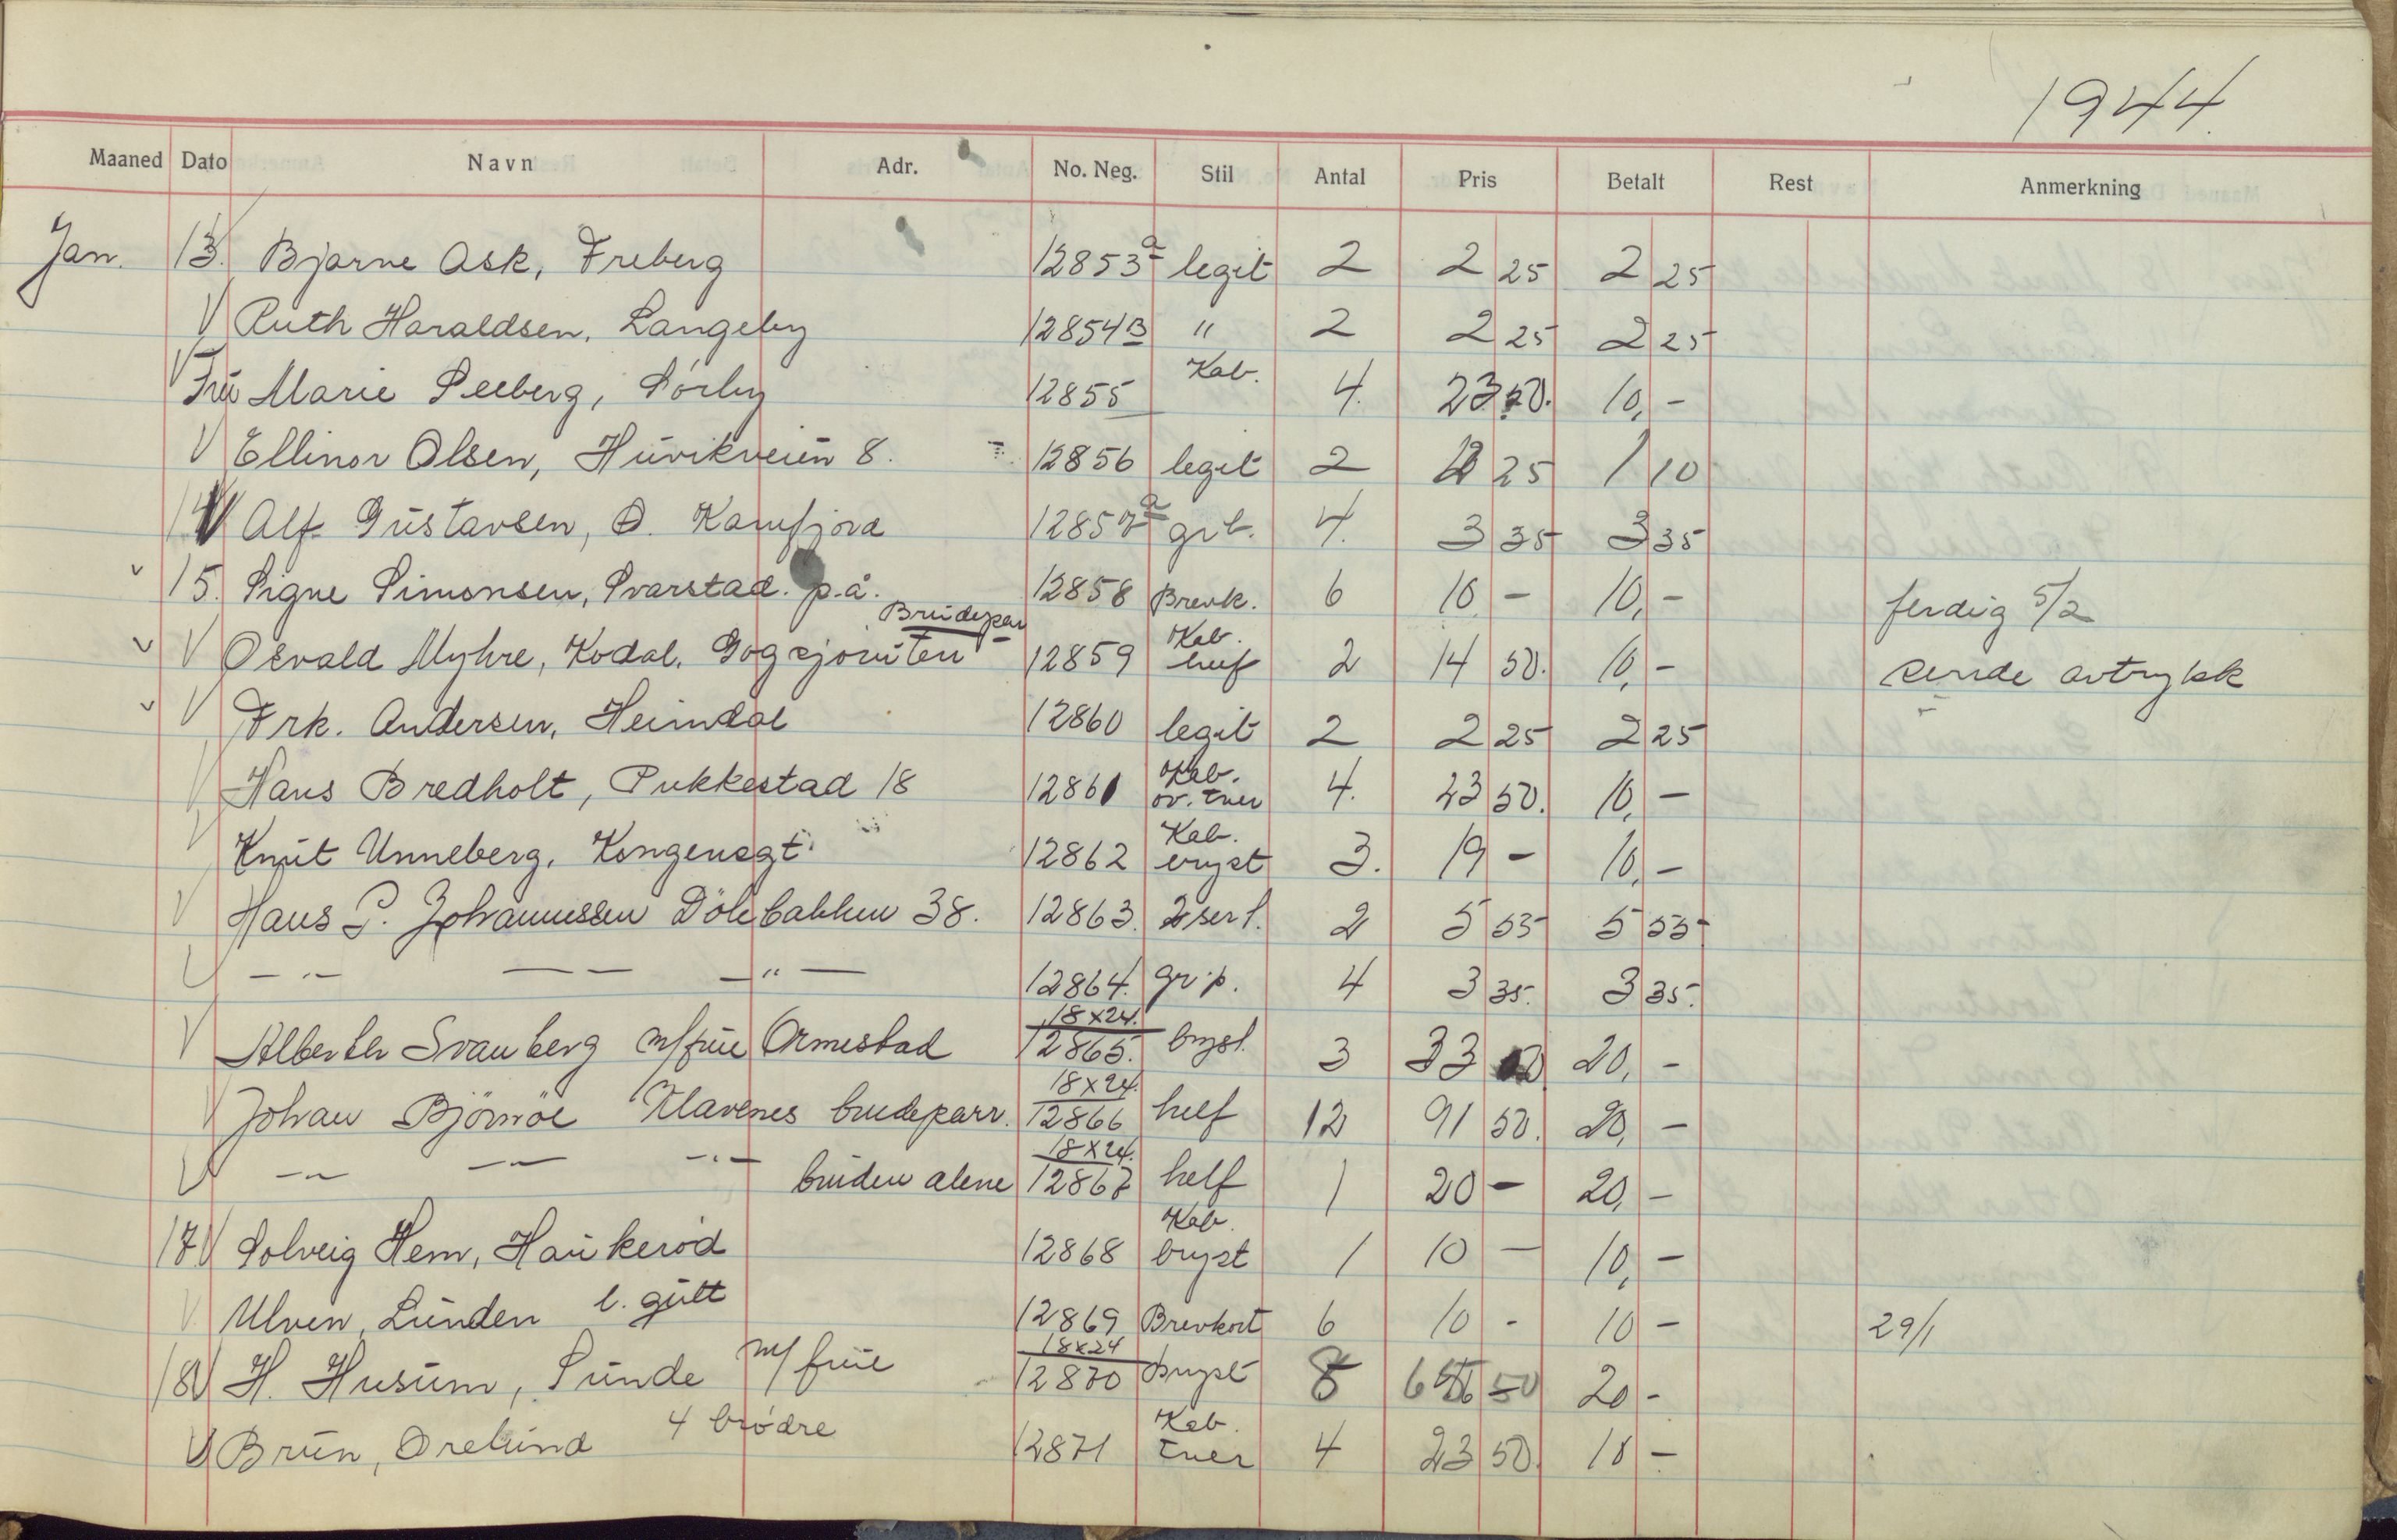 1944.
Maaned Dato Navn Adr. No. Neg. Stil Antal Pris Betalt Rest Anmerkning
Jan. 13. Bjarne Ask, Freberg 12853a legit 2 2 25 2 25
V Ruth Haraldsen, Langeby 12854B " 2 2 25 2 25
V Fru Marie Seeberg, Sörby 12855 Kab. 4. 23 50. 10,-
V Ellinor Olsen, Huvikveien 8. 12856 legit 2 2 25 1 10
14 V Alf Gustavsen, Ö. Kamfjord 12857a grb. 4. 3 35 3 35
v 15. Signe Simonsen, Svarstad. p.å. 12858 Brevk. 6 10 - 10,- ferdig 5/2
Brudepar
v V Osvald Myhre, Kodal, Gogsjöruten 12859 Kab. helf 2 14 50. 10,- sende avtrykk
v V Frk. Andersen, Heimdal 12860 legit 2 2 25 2 25
V Hans Bredholt, Pukkestad 18 12861 Kab. ov. tver 4. 23 50. 10,-
V Knut Unneberg, Kongensgt. 12862 Kab. bryst 3. 19 - 10,-
V Hans P. Johannessen Dölebakken 38. 12863. 2 serl. 2 5 55 5 55
V - " - - - - " - 12864. gr.p. 4 3 35. 3 35.
V Alberth Svanberg m/frue Ormestad 18x24. 12865. bryst. 3 33 20,-
V Johan Björnöe Klavenes brudeparr. 18x24. 12866 helf 12 91 50. 20,-
V - " - - " - - " - bruden alene 18x24. 12867 helf 1 20 - 20,-
17. V Solveig Hem, Haukeröd 12868 Kab. bryst 1 10 - 10,-
V Ulven, Lunden l. gutt 12869 Brevkort 6 10 - 10 - 29/1
18 V H. Husum, Sunde m/frue 18x24 12870 bryst 8 50 20 -
V Brun, Orelund 4 brödre 12871 Kab. tver 4 23 50. 10 -